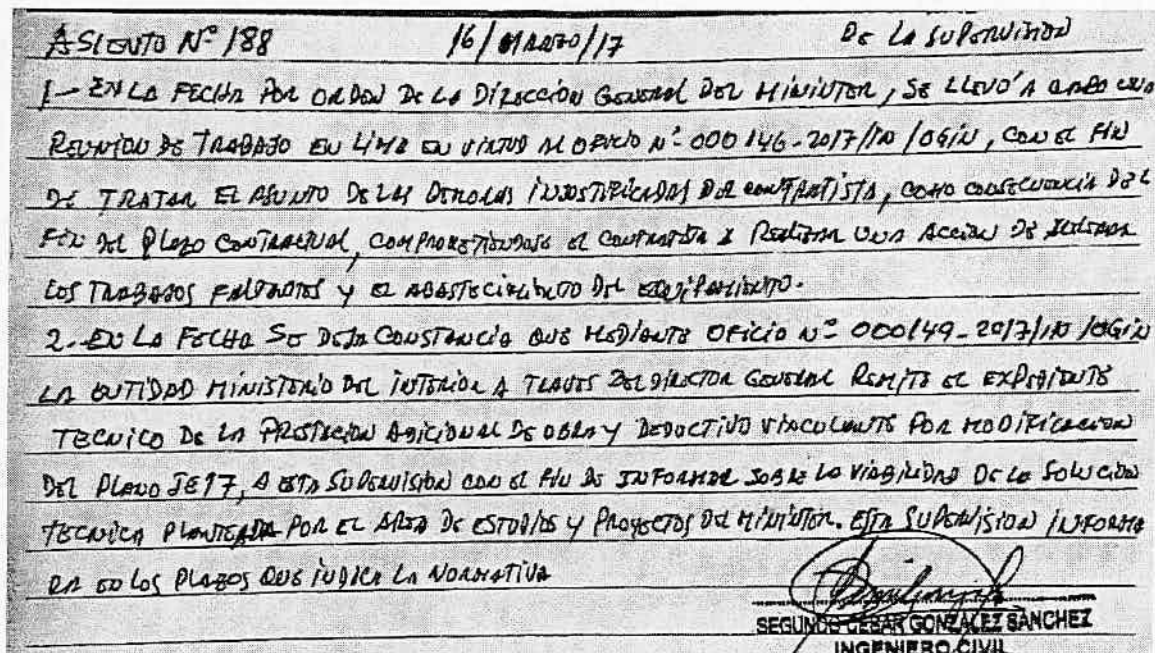 ASIENTO Nº 188 16/MARZO/17 DE LA SUPERVISION
1.- EN LA FECHA POR ORDEN DE LA DIRECCIÓN GENERAL DEL MININTER, SE LLEVÓ A CABO UNA
REUNIÓN DE TRABAJO EN LIMA EN VIRTUD AL OFICIO Nº 000146-2017/IN/OGIN, CON EL FIN
DE TRATAR EL ASUNTO DE LAS DEMORAS INJUSTIFICADAS DEL CONTRATISTA, COMO CONSECUENCIA DEL
FIN DEL PLAZO CONTRACTUAL, COMPROMETIENDOSE EL CONTRATISTA A REALIZAR UNA ACCION DE
LOS TRABAJOS FALTANTES Y EL ABASTECIMIENTO DEL EQUIPAMIENTO.
2.- EN LA FECHA SE DEJA CONSTANCIA QUE MEDIANTE OFICIO Nº 000149-2017/IN/OGIN
LA ENTIDAD MINISTERIO DEL INTERIOR A TRAVES DEL DIRECTOR GENERAL REMITE EL EXPEDIENTE
TECNICO DE LA PRESTACION ADICIONAL DE OBRA Y DEDUCTIVO VINCULANTE POR MODIFICACION
DEL PLANO IE17, A ESTA SUPERVISIÓN CON EL FIN DE INFORMAR SOBRE LA VIABILIDAD DE LA SOLUCION
TECNICA PLANTEADA POR EL AREA DE ESTUDIOS Y PROYECTOS DEL MININTER. ESTA SUPERVISION INFORMA
RA EN LOS PLAZOS QUE INDICA LA NORMATIVA
SEGUNDO CESAR GONZALEZ SANCHEZ
INGENIERO CIVIL